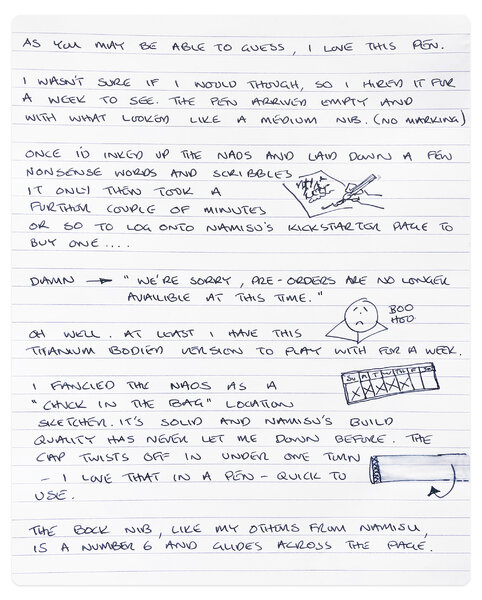 AS YOU MAY BE ABLE TO GUESS, I LOVE THIS PEN.
I WASN'T SURE IF I WOULD THOUGH, SO I HIRED IT FOR
A WEEK TO SEE. THE PEN ARRIVED EMPTY AND
WITH WHAT LOOKED LIKE A MEDIUM NIB. (NO MARKING)
ONCE I'D INKED UP THE NAOS AND LAID DOWN A FEW
NONSENSE WORDS AND SCRIBBLES
IT ONLY THEN TOOK A
FURTHER COUPLE OF MINUTES
OR SO TO LOG ONTO NAMISU'S KICKSTARTER PAGE TO
BUY ONE....
DAMN → "WE'RE SORRY, PRE-ORDERS ARE NO LONGER
AVAILIBLE AT THIS TIME."
BOO
HOO
OH WELL. AT LEAST I HAVE THIS
TITANIUM BODIED VERSION TO PLAY WITH FOR A WEEK.
I FANCIED THE NAOS AS A
"CHUCK IN THE BAG" LOCATION
SKETCHER. IT'S SOLID AND NAMISU'S BUILD
QUALITY HAS NEVER LET ME DOWN BEFORE. THE
CAP TWISTS OFF IN UNDER ONE TURN
- I LOVE THAT IN A PEN - QUICK TO
USE.
THE BOCK NIB, LIKE MY OTHERS FROM NAMISU,
IS A NUMBER 6 AND GLIDES ACROSS THE PAGE.